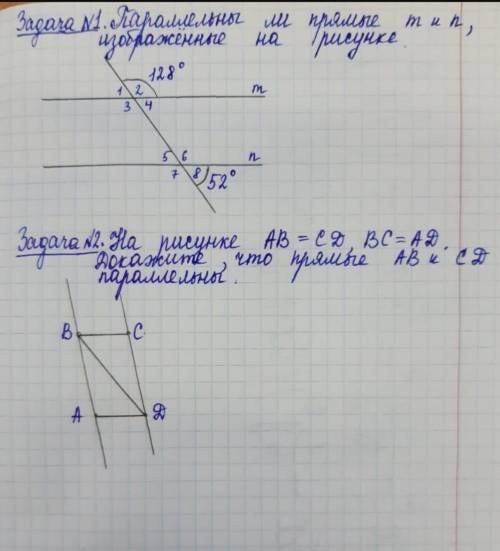 Задача №1. Параллельны ли прямые m и n,
изображённые на рисунке.
128°
1 2 m
3 4
5 6 n
7 8 52°
Задача №2. На рисунке AB = CD, BC = AD.
Докажите, что прямые AB и CD
параллельны.
B C
A D